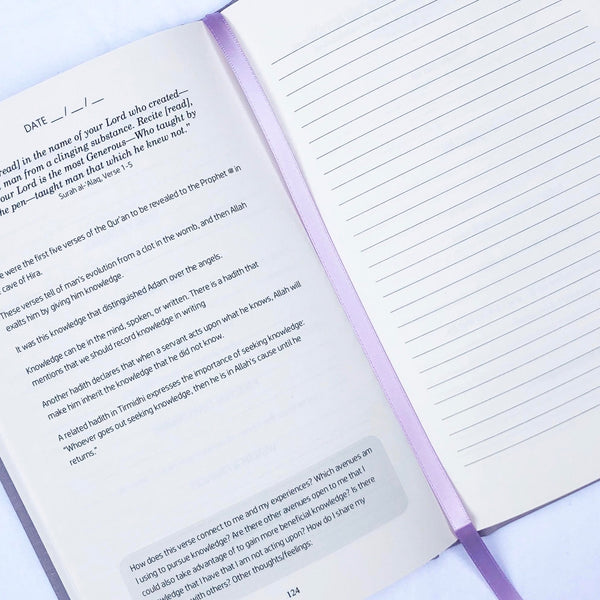 DATE __ / __ / __
read] in the name of your Lord who created—
man from a clinging substance. Recite [read],
our Lord is the most Generous—Who taught by
he pen—taught man that which he knew not.”
Surah al-‘Alaq, Verse 1-5
e were the first five verses of the Qur’an to be revealed to the Prophet ﷺ in
cave of Hira.
These verses tell of man’s evolution from a clot in the womb, and then Allah
exalts him by giving him knowledge.
It was this knowledge that distinguished Adam over the angels.
Knowledge can be in the mind, spoken, or written. There is a hadith that
mentions that we should record knowledge in writing
Another hadith declares that when a servant acts upon what he knows, Allah will
make him inherit the knowledge that he did not know.
A related hadith in Tirmidhi expresses the importance of seeking knowledge:
“Whoever goes out seeking knowledge, then he is in Allah’s cause until he
returns.”
How does this verse connect to me and my experiences? Which avenues am
I using to pursue knowledge? Are there other avenues open to me that I
could also take advantage of to gain more beneficial knowledge? Is there
knowledge that I have that I am not acting upon? How do I share my
with others? Other thoughts/feelings:
124